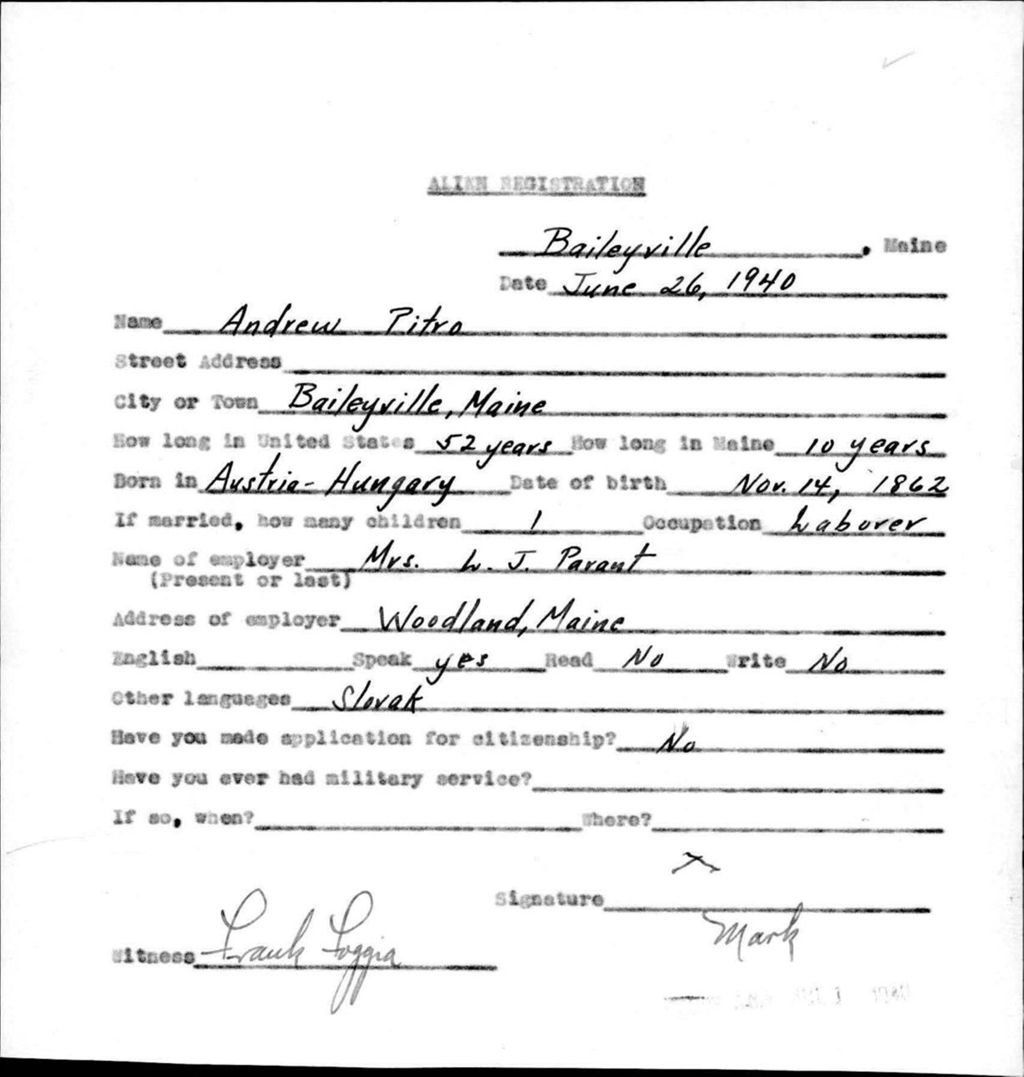 ALIEN REGISTRATION
Baileyville, Maine
Date June 26, 1940
Name Andrew Pitro
Street Address
City or Town Baileyville, Maine
How long in United States 52 years How long in Maine 10 years
Born in Austria-Hungary Date of birth Nov. 14, 1862
If married, how many children 1 Occupation Laborer
Name of employer Mrs. L. J. Parant
(Present or last)
Address of employer Woodland, Maine
English Speak yes Read No Write No
Other languages Slovak
Have you made application for citizenship? No
Have you ever had military service?
If so, when? Where?
X
Signature
Mark
Witness Frank Foggia